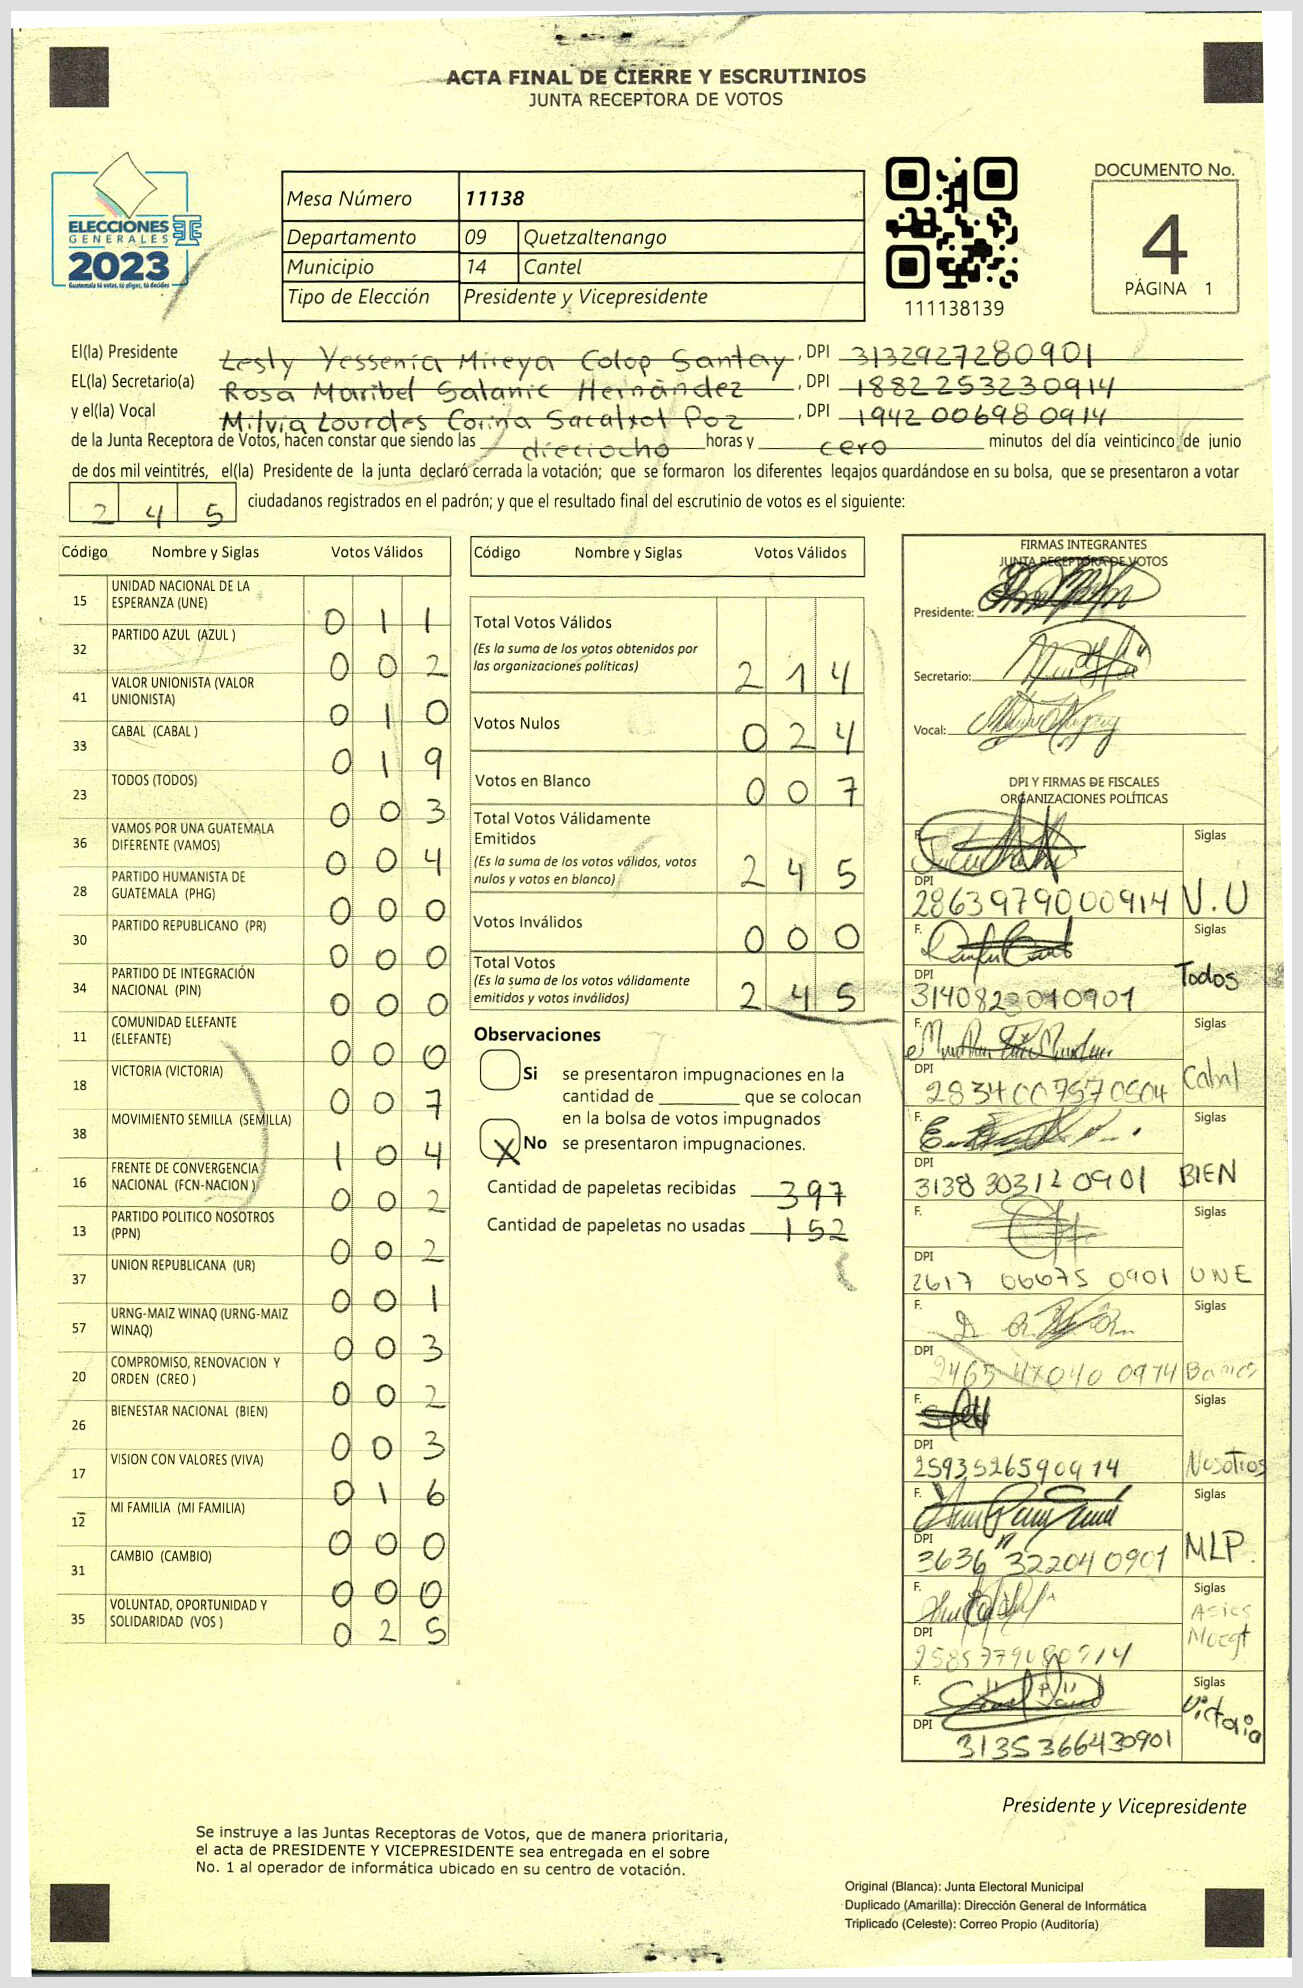 ACTA FINAL DE CIERRE Y ESCRUTINIOS
JUNTA RECEPTORA DE VOTOS
ELECCIONES
GENERALES
2023
Guatemala tú votas, tú eliges, tú decides
Mesa Número 11138
Departamento 09 Quetzaltenango
Municipio 14 Cantel
Tipo de Elección Presidente y Vicepresidente
111138139
DOCUMENTO No.
4
PÁGINA 1
El(la) Presidente Lesly Yessenia Mireya Colop Santay, DPI 3132927280901
EL(la) Secretario(a) Rosa Maribel Salanic Hernández, DPI 1882253230914
y el(la) Vocal Milvia Lourdes Corina Sacalxot Poz, DPI 1942006980914
de la Junta Receptora de Votos, hacen constar que siendo las dieciocho horas y cero minutos del día veinticinco de junio
de dos mil veintitrés, el(la) Presidente de la junta declaró cerrada la votación; que se formaron los diferentes legajos guardándose en su bolsa, que se presentaron a votar
2 4 5 ciudadanos registrados en el padrón; y que el resultado final del escrutinio de votos es el siguiente:
Código Nombre y Siglas Votos Válidos
15 UNIDAD NACIONAL DE LA ESPERANZA (UNE) 0 1 1
32 PARTIDO AZUL (AZUL ) 0 0 2
41 VALOR UNIONISTA (VALOR UNIONISTA) 0 1 0
33 CABAL (CABAL ) 0 1 9
23 TODOS (TODOS) 0 0 3
36 VAMOS POR UNA GUATEMALA DIFERENTE (VAMOS) 0 0 4
28 PARTIDO HUMANISTA DE GUATEMALA (PHG) 0 0 0
30 PARTIDO REPUBLICANO (PR) 0 0 0
34 PARTIDO DE INTEGRACIÓN NACIONAL (PIN) 0 0 0
11 COMUNIDAD ELEFANTE (ELEFANTE) 0 0 0
18 VICTORIA (VICTORIA) 0 0 7
38 MOVIMIENTO SEMILLA (SEMILLA) 1 0 4
16 FRENTE DE CONVERGENCIA NACIONAL (FCN-NACION ) 0 0 2
13 PARTIDO POLITICO NOSOTROS (PPN) 0 0 2
37 UNION REPUBLICANA (UR) 0 0 1
57 URNG-MAIZ WINAQ (URNG-MAIZ WINAQ) 0 0 3
20 COMPROMISO, RENOVACION Y ORDEN (CREO ) 0 0 2
26 BIENESTAR NACIONAL (BIEN) 0 0 3
17 VISION CON VALORES (VIVA) 0 1 6
12 MI FAMILIA (MI FAMILIA) 0 0 0
31 CAMBIO (CAMBIO) 0 0 0
35 VOLUNTAD, OPORTUNIDAD Y SOLIDARIDAD (VOS ) 0 2 5
Código Nombre y Siglas Votos Válidos
Total Votos Válidos
(Es la suma de los votos obtenidos por
las organizaciones políticas) 2 1 4
Votos Nulos 0 2 4
Votos en Blanco 0 0 7
Total Votos Válidamente
Emitidos
(Es la suma de los votos válidos, votos
nulos y votos en blanco) 2 4 5
Votos Inválidos 0 0 0
Total Votos
(Es la suma de los votos válidamente
emitidos y votos inválidos) 2 4 5
Observaciones
Si se presentaron impugnaciones en la
cantidad de ________ que se colocan
en la bolsa de votos impugnados
X No se presentaron impugnaciones.
Cantidad de papeletas recibidas 397
Cantidad de papeletas no usadas 152
FIRMAS INTEGRANTES
JUNTA RECEPTORA DE VOTOS
Presidente:
Secretario:
Vocal:
DPI Y FIRMAS DE FISCALES
ORGANIZACIONES POLÍTICAS
F. Siglas
DPI
2863979000914 V.U
F. Siglas
DPI Todos
F. Siglas
DPI Cabal
2834007570904
F. Siglas
DPI
3138303120901 BIEN
F. Siglas
DPI
2617 06675 0901 UNE
F. Siglas
DPI
F. Siglas
DPI
2593526590914 Nosotros
F. Siglas
DPI
3636 32204 0901 MLP.
F. Siglas
DPI
F. Siglas
DPI Victoria
3135366430901
Presidente y Vicepresidente
Se instruye a las Juntas Receptoras de Votos, que de manera prioritaria,
el acta de PRESIDENTE Y VICEPRESIDENTE sea entregada en el sobre
No. 1 al operador de informática ubicado en su centro de votación.
Original (Blanca): Junta Electoral Municipal
Duplicado (Amarilla): Dirección General de Informática
Triplicado (Celeste): Correo Propio (Auditoría)